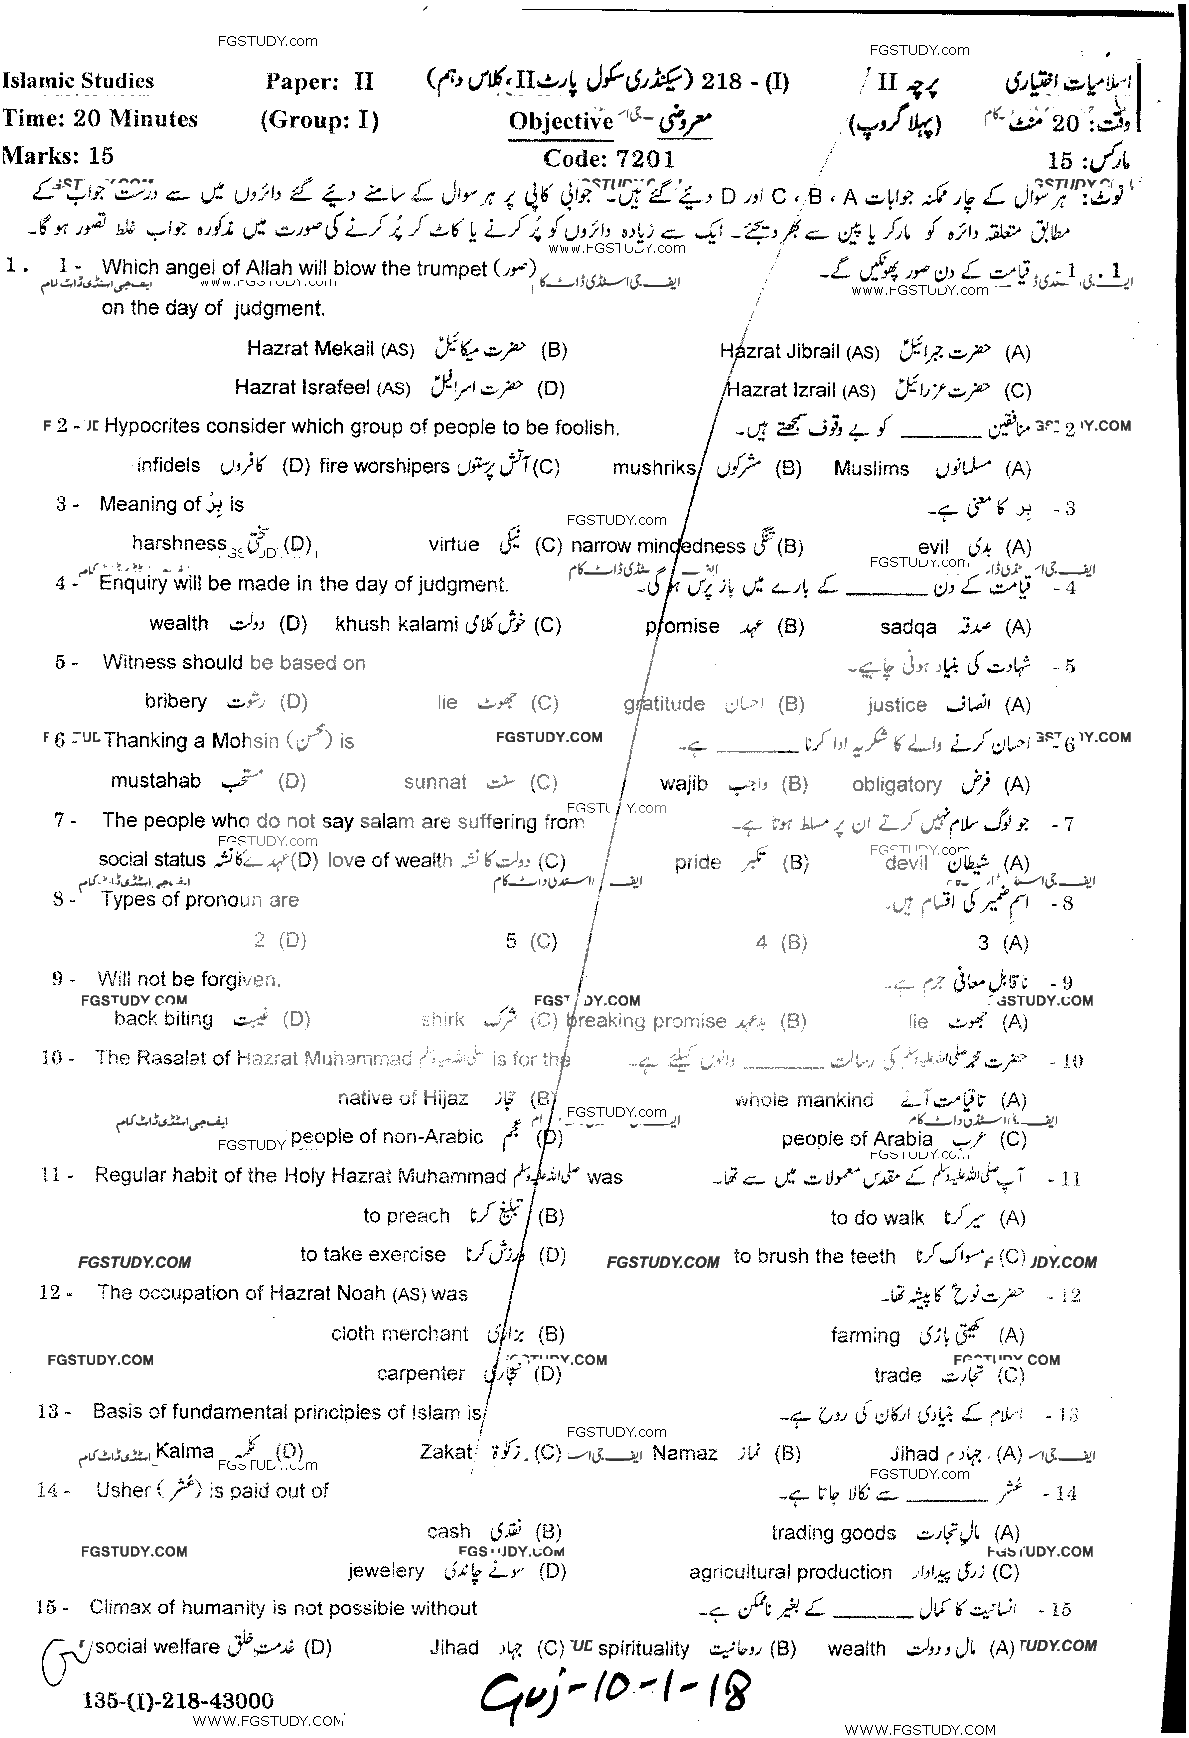 FGSTUDY.com FGSTUDY.com
Islamic Studies Paper: II (سیکنڈری سکول پارٹ II، کلاس دہم) 218 - (I) پرچہ II اسلامیات اختیاری
Time: 20 Minutes (Group: I) Objective معروضی (پہلا گروپ) وقت: 20 منٹ
Marks: 15 Code: 7201 مارکس: 15
نوٹ: ہر سوال کے چار ممکنہ جوابات A ، B ، C اور D دیئے گئے ہیں۔ جوابی کاپی پر ہر سوال کے سامنے دیئے گئے دائروں میں سے درست جواب کے
مطابق متعلقہ دائرہ کو مارکر یا پین سے بھر دیجئے۔ ایک سے زیادہ دائروں کو پُر کرنے یا کاٹ کر پُر کرنے کی صورت میں مذکورہ جواب غلط تصور ہو گا۔
www.FGSTUDY.com
1. 1 - Which angel of Allah will blow the trumpet (صور) قیامت کے دن صور پھونکیں گے۔ 1 - 1
ایف جی اسٹڈی ڈاٹ کام www.FGSTUDY.com ایف جی اسٹڈی ڈاٹ کام www.FGSTUDY.com
on the day of judgment.
Hazrat Mekail (AS) حضرت میکائیلؑ (B) Hazrat Jibrail (AS) حضرت جبرائیلؑ (A)
Hazrat Israfeel (AS) حضرت اسرافیلؑ (D) Hazrat Izrail (AS) حضرت عزرائیلؑ (C)
2 - Hypocrites consider which group of people to be foolish. منافقین ________ کو بے وقوف سمجھتے ہیں۔ 2
infidels کافروں (D) fire worshipers آتش پرستوں (C) mushriks مشرکوں (B) Muslims مسلمانوں (A)
3 - Meaning of بِرّ is بر کا معنی ہے۔ - 3
FGSTUDY.com
harshness سختی (D) virtue نیکی (C) narrow mindedness تنگی (B) evil بدی (A)
FGSTUDY.com
4 - Enquiry will be made in the day of judgment. قیامت کے دن ________ کے بارے میں باز پرس ہو گی۔ - 4
wealth دولت (D) khush kalami خوش کلامی (C) promise عہد (B) sadqa صدقہ (A)
5 - Witness should be based on شہادت کی بنیاد ہونی چاہیے۔ - 5
bribery رشوت (D) lie جھوٹ (C) gratitude احسان (B) justice انصاف (A)
6 - Thanking a Mohsin (محسن) is FGSTUDY.COM احسان کرنے والے کا شکریہ ادا کرنا ________ ہے۔ 6
mustahab مستحب (D) sunnat سنت (C) wajib واجب (B) obligatory فرض (A)
FGSTUDY.com
7 - The people who do not say salam are suffering from جو لوگ سلام نہیں کرتے ان پر مسلط ہوتا ہے۔ - 7
FGSTUDY.com FGSTUDY.com
social status عہدے کا نشہ (D) love of wealth دولت کا نشہ (C) pride تکبر (B) devil شیطان (A)
8 - Types of pronoun are اسم ضمیر کی اقسام ہیں۔ - 8
2 (D) 5 (C) 4 (B) 3 (A)
9 - Will not be forgiven. ناقابل معافی جرم ہے۔ - 9
FGSTUDY.COM FGSTUDY.COM FGSTUDY.COM
back biting غیبت (D) shirk شرک (C) breaking promise بدعہد (B) lie جھوٹ (A)
10 - The Rasalat of Hazrat Muhammad صلی اللہ علیہ وسلم is for the حضرت محمد صلی اللہ علیہ وسلم کی رسالت ________ والوں کیلئے ہے۔ - 10
native of Hijaz حجاز (B) whole mankind تاقیامت آنے (A)
FGSTUDY.com
FGSTUDY people of non-Arabic عجم (D) people of Arabia عرب (C)
FGSTUDY.com
11 - Regular habit of the Holy Hazrat Muhammad صلی اللہ علیہ وسلم was آپ صلی اللہ علیہ وسلم کے مقدس معمولات میں سے تھا۔ - 11
to preach تبلیغ کرنا (B) to do walk سیر کرنا (A)
FGSTUDY.COM to take exercise ورزش کرنا (D) FGSTUDY.COM to brush the teeth مسواک کرنا (C) JDY.COM
12 - The occupation of Hazrat Noah (AS) was حضرت نوحؑ کا پیشہ تھا۔ - 12
cloth merchant بزازی (B) farming کھیتی باڑی (A)
FGSTUDY.COM FGSTUDY.COM FGSTUDY.COM
carpenter نجاری (D) trade تجارت (C)
13 - Basis of fundamental principles of Islam is اسلام کے بنیادی ارکان کی روح ہے۔ - 13
FGSTUDY.com
Kalma کلمہ (D) Zakat زکوٰۃ (C) Namaz نماز (B) Jihad جہاد (A)
FGSTUDY.com FGSTUDY.com
14 - Usher (عُشر) is paid out of عُشر ________ سے نکالا جاتا ہے۔ - 14
cash نقدی (B) trading goods مال تجارت (A)
FGSTUDY.COM FGSTUDY.COM FGSTUDY.COM
jewelery سونے چاندی (D) agricultural production زرعی پیداوار (C)
15 - Climax of humanity is not possible without انسانیت کا کمال ________ کے بغیر ناممکن ہے۔ - 15
social welfare خدمت خلق (D) Jihad جہاد (C) spirituality روحانیت (B) wealth مال و دولت (A) TUDY.COM
135-(I)-218-43000 Guj-10-1-18
WWW.FGSTUDY.COM WWW.FGSTUDY.COM